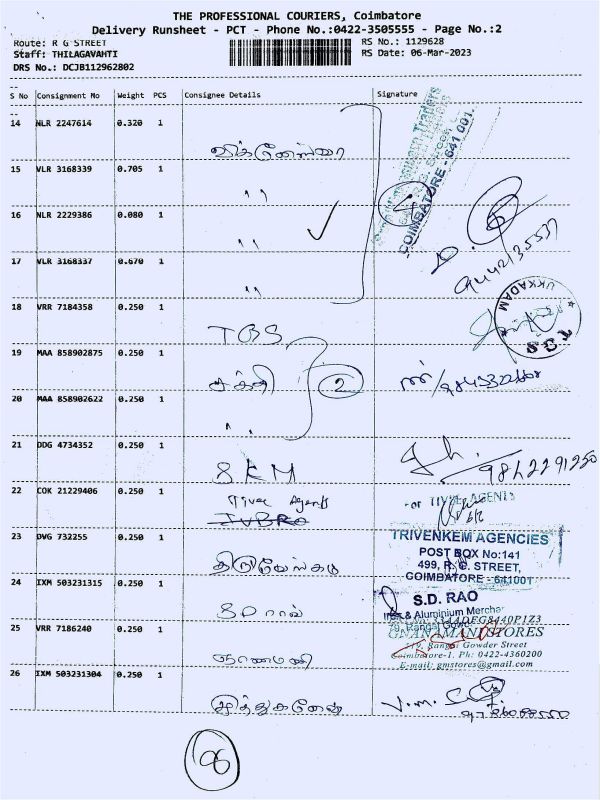 THE PROFESSIONAL COURIERS, Coimbatore
Delivery Runsheet - PCT - Phone No.:0422-3505555 - Page No.:2
Route: R G STREET
RS No.: 1129628
Staff: THILAGAVAHTI
RS Date: 06-Mar-2023
DRS No.: DCJB112962802
S No Consignment No Weight PCS Consignee Details Signature
14 NLR 2247614 0.320 1
விக்னேஸ்வரா
15 VLR 3168339 0.705 1
,,
16 NLR 2229386 0.080 1
,,
17 VLR 3168337 0.670 1
,,
4
COIMBATORE - 641 001.
18 VRR 7184358 0.250 1
TGS
UKKADAM
TGS
19 MAA 858902875 0.250 1
சக்தி
2
20 MAA 858902622 0.250 1
,,
21 DDG 4734352 0.250 1
SKM
9842291250
22 COK 21229406 0.250 1
Tivee Agents
23 DVG 732255 0.250 1
TRIVENKEM AGENCIES
POST BOX No:141
499, R. G. STREET,
COIMBATORE - 641001
24 IXM 503231315 0.250 1
SD ராவ்
S.D. RAO
Iron & Aluminium Merchant
79, Rangai Gowder
25 VRR 7186240 0.250 1
ஞானமணி
GNANAMANI STORES
Rangai Gowder Street
Coimbatore-1. Ph: 0422-4360200
E-mail: gmstores@gmail.com
26 IXM 503231304 0.250 1
முத்துகணேஷ்